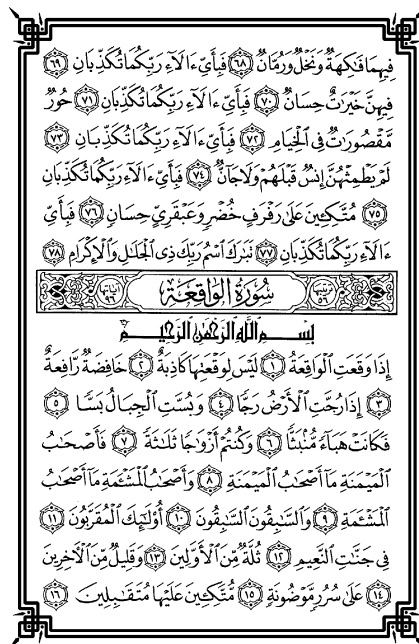 فِيهِمَا فَاكِهَةٌ وَنَخْلٌ وَرُمَّانٌ ٦٨ فَبِأَيِّ ءَالَآءِ رَبِّكُمَا تُكَذِّبَانِ ٦٩
فِيهِنَّ خَيْرَاتٌ حِسَانٌ ٧٠ فَبِأَيِّ ءَالَآءِ رَبِّكُمَا تُكَذِّبَانِ ٧١ حُورٌ
مَّقْصُورَاتٌ فِي الْخِيَامِ ٧٢ فَبِأَيِّ ءَالَآءِ رَبِّكُمَا تُكَذِّبَانِ ٧٣
لَمْ يَطْمِثْهُنَّ إِنسٌ قَبْلَهُمْ وَلَا جَآنٌّ ٧٤ فَبِأَيِّ ءَالَآءِ رَبِّكُمَا تُكَذِّبَانِ
٧٥ مُتَّكِئِينَ عَلَىٰ رَفْرَفٍ خُضْرٍ وَعَبْقَرِيٍّ حِسَانٍ ٧٦ فَبِأَيِّ
ءَالَآءِ رَبِّكُمَا تُكَذِّبَانِ ٧٧ تَبَارَكَ اسْمُ رَبِّكَ ذِي الْجَلَالِ وَالْإِكْرَامِ ٧٨
سُورَةُ الوَاقِعَة
بِسْمِ اللَّهِ الرَّحْمَٰنِ الرَّحِيمِ
إِذَا وَقَعَتِ الْوَاقِعَةُ ١ لَيْسَ لِوَقْعَتِهَا كَاذِبَةٌ ٢ خَافِضَةٌ رَّافِعَةٌ
٣ إِذَا رُجَّتِ الْأَرْضُ رَجًّا ٤ وَبُسَّتِ الْجِبَالُ بَسًّا ٥
فَكَانَتْ هَبَآءً مُّنبَثًّا ٦ وَكُنتُمْ أَزْوَاجًا ثَلَاثَةً ٧ فَأَصْحَابُ
الْمَيْمَنَةِ مَآ أَصْحَابُ الْمَيْمَنَةِ ٨ وَأَصْحَابُ الْمَشْـَٔمَةِ مَآ أَصْحَابُ
الْمَشْـَٔمَةِ ٩ وَالسَّابِقُونَ السَّابِقُونَ ١٠ أُولَٰٓئِكَ الْمُقَرَّبُونَ ١١
فِي جَنَّاتِ النَّعِيمِ ١٢ ثُلَّةٌ مِّنَ الْأَوَّلِينَ ١٣ وَقَلِيلٌ مِّنَ الْآخِرِينَ
١٤ عَلَىٰ سُرُرٍ مَّوْضُونَةٍ ١٥ مُّتَّكِئِينَ عَلَيْهَا مُتَقَابِلِينَ ١٦